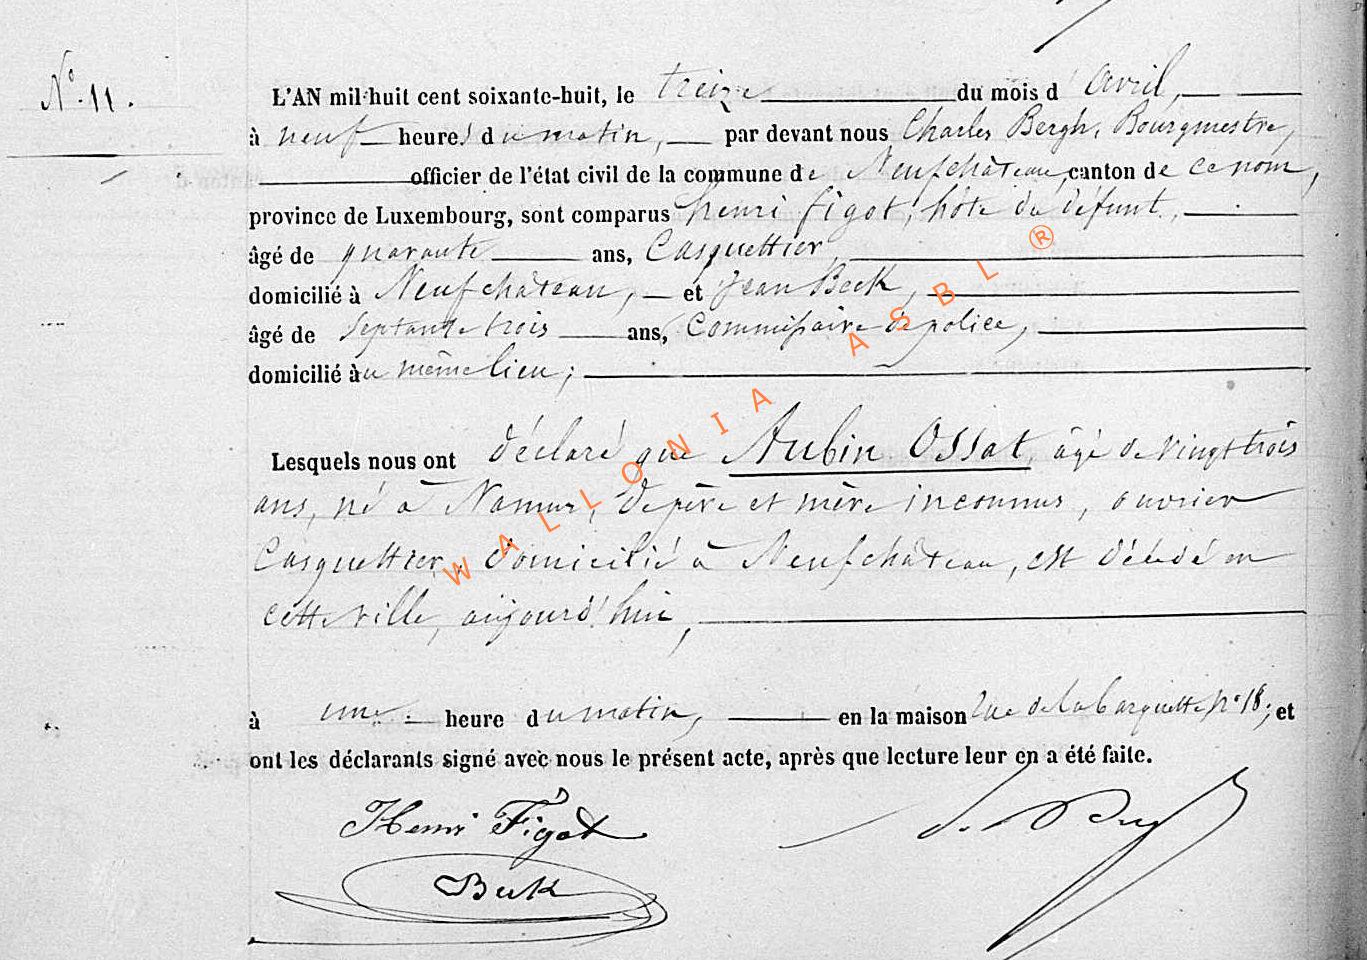 N° 11.
L'AN mil huit cent soixante-huit, le treize du mois d'avril,
à neuf heures du matin, par devant nous Charles Bergh, Bourgmestre,
officier de l'état civil de la commune de Neufchâteau, canton de ce nom,
province de Luxembourg, sont comparus henri figot, hôte du défunt,
âgé de quarante ans, Casquettier,
domicilié à Neufchâteau, et Jean Beck,
âgé de Septante trois ans, Commissaire de police,
domicilié au même lieu;
Lesquels nous ont déclaré que Aubin Ossat, âgé de vingt trois
ans, né à Namur, de père et mère inconnus, ouvrier
Casquettier, domicilié à Neufchâteau, est décédé en
cette ville, aujourd'hui,
à une heure du matin, en la maison rue de la barquette n° 18; et
ont les déclarants signé avec nous le présent acte, après que lecture leur en a été faite.
Henri Figot
Beck
WALLONIA ASBL ®